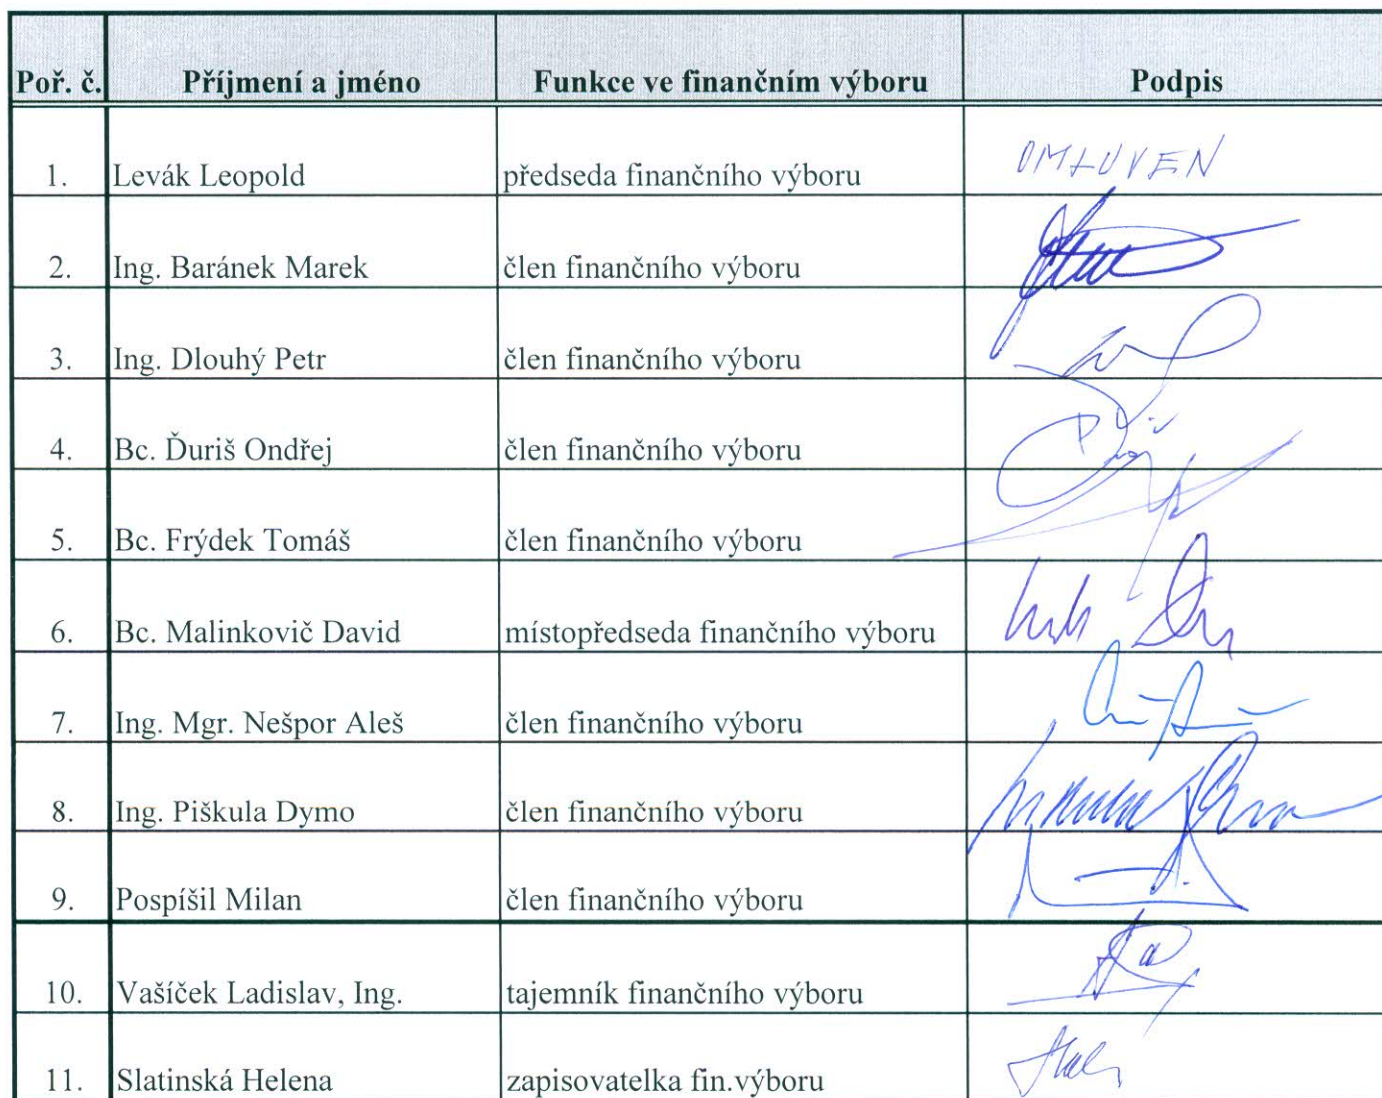 Poř. č. Příjmení a jméno Funkce ve finančním výboru Podpis
1. Levák Leopold předseda finančního výboru OMLUVEN
2. Ing. Baránek Marek člen finančního výboru
3. Ing. Dlouhý Petr člen finančního výboru
4. Bc. Ďuriš Ondřej člen finančního výboru
5. Bc. Frýdek Tomáš člen finančního výboru
6. Bc. Malinkovič David místopředseda finančního výboru
7. Ing. Mgr. Nešpor Aleš člen finančního výboru
8. Ing. Piškula Dymo člen finančního výboru
9. Pospíšil Milan člen finančního výboru
10. Vašíček Ladislav, Ing. tajemník finančního výboru
11. Slatinská Helena zapisovatelka fin.výboru